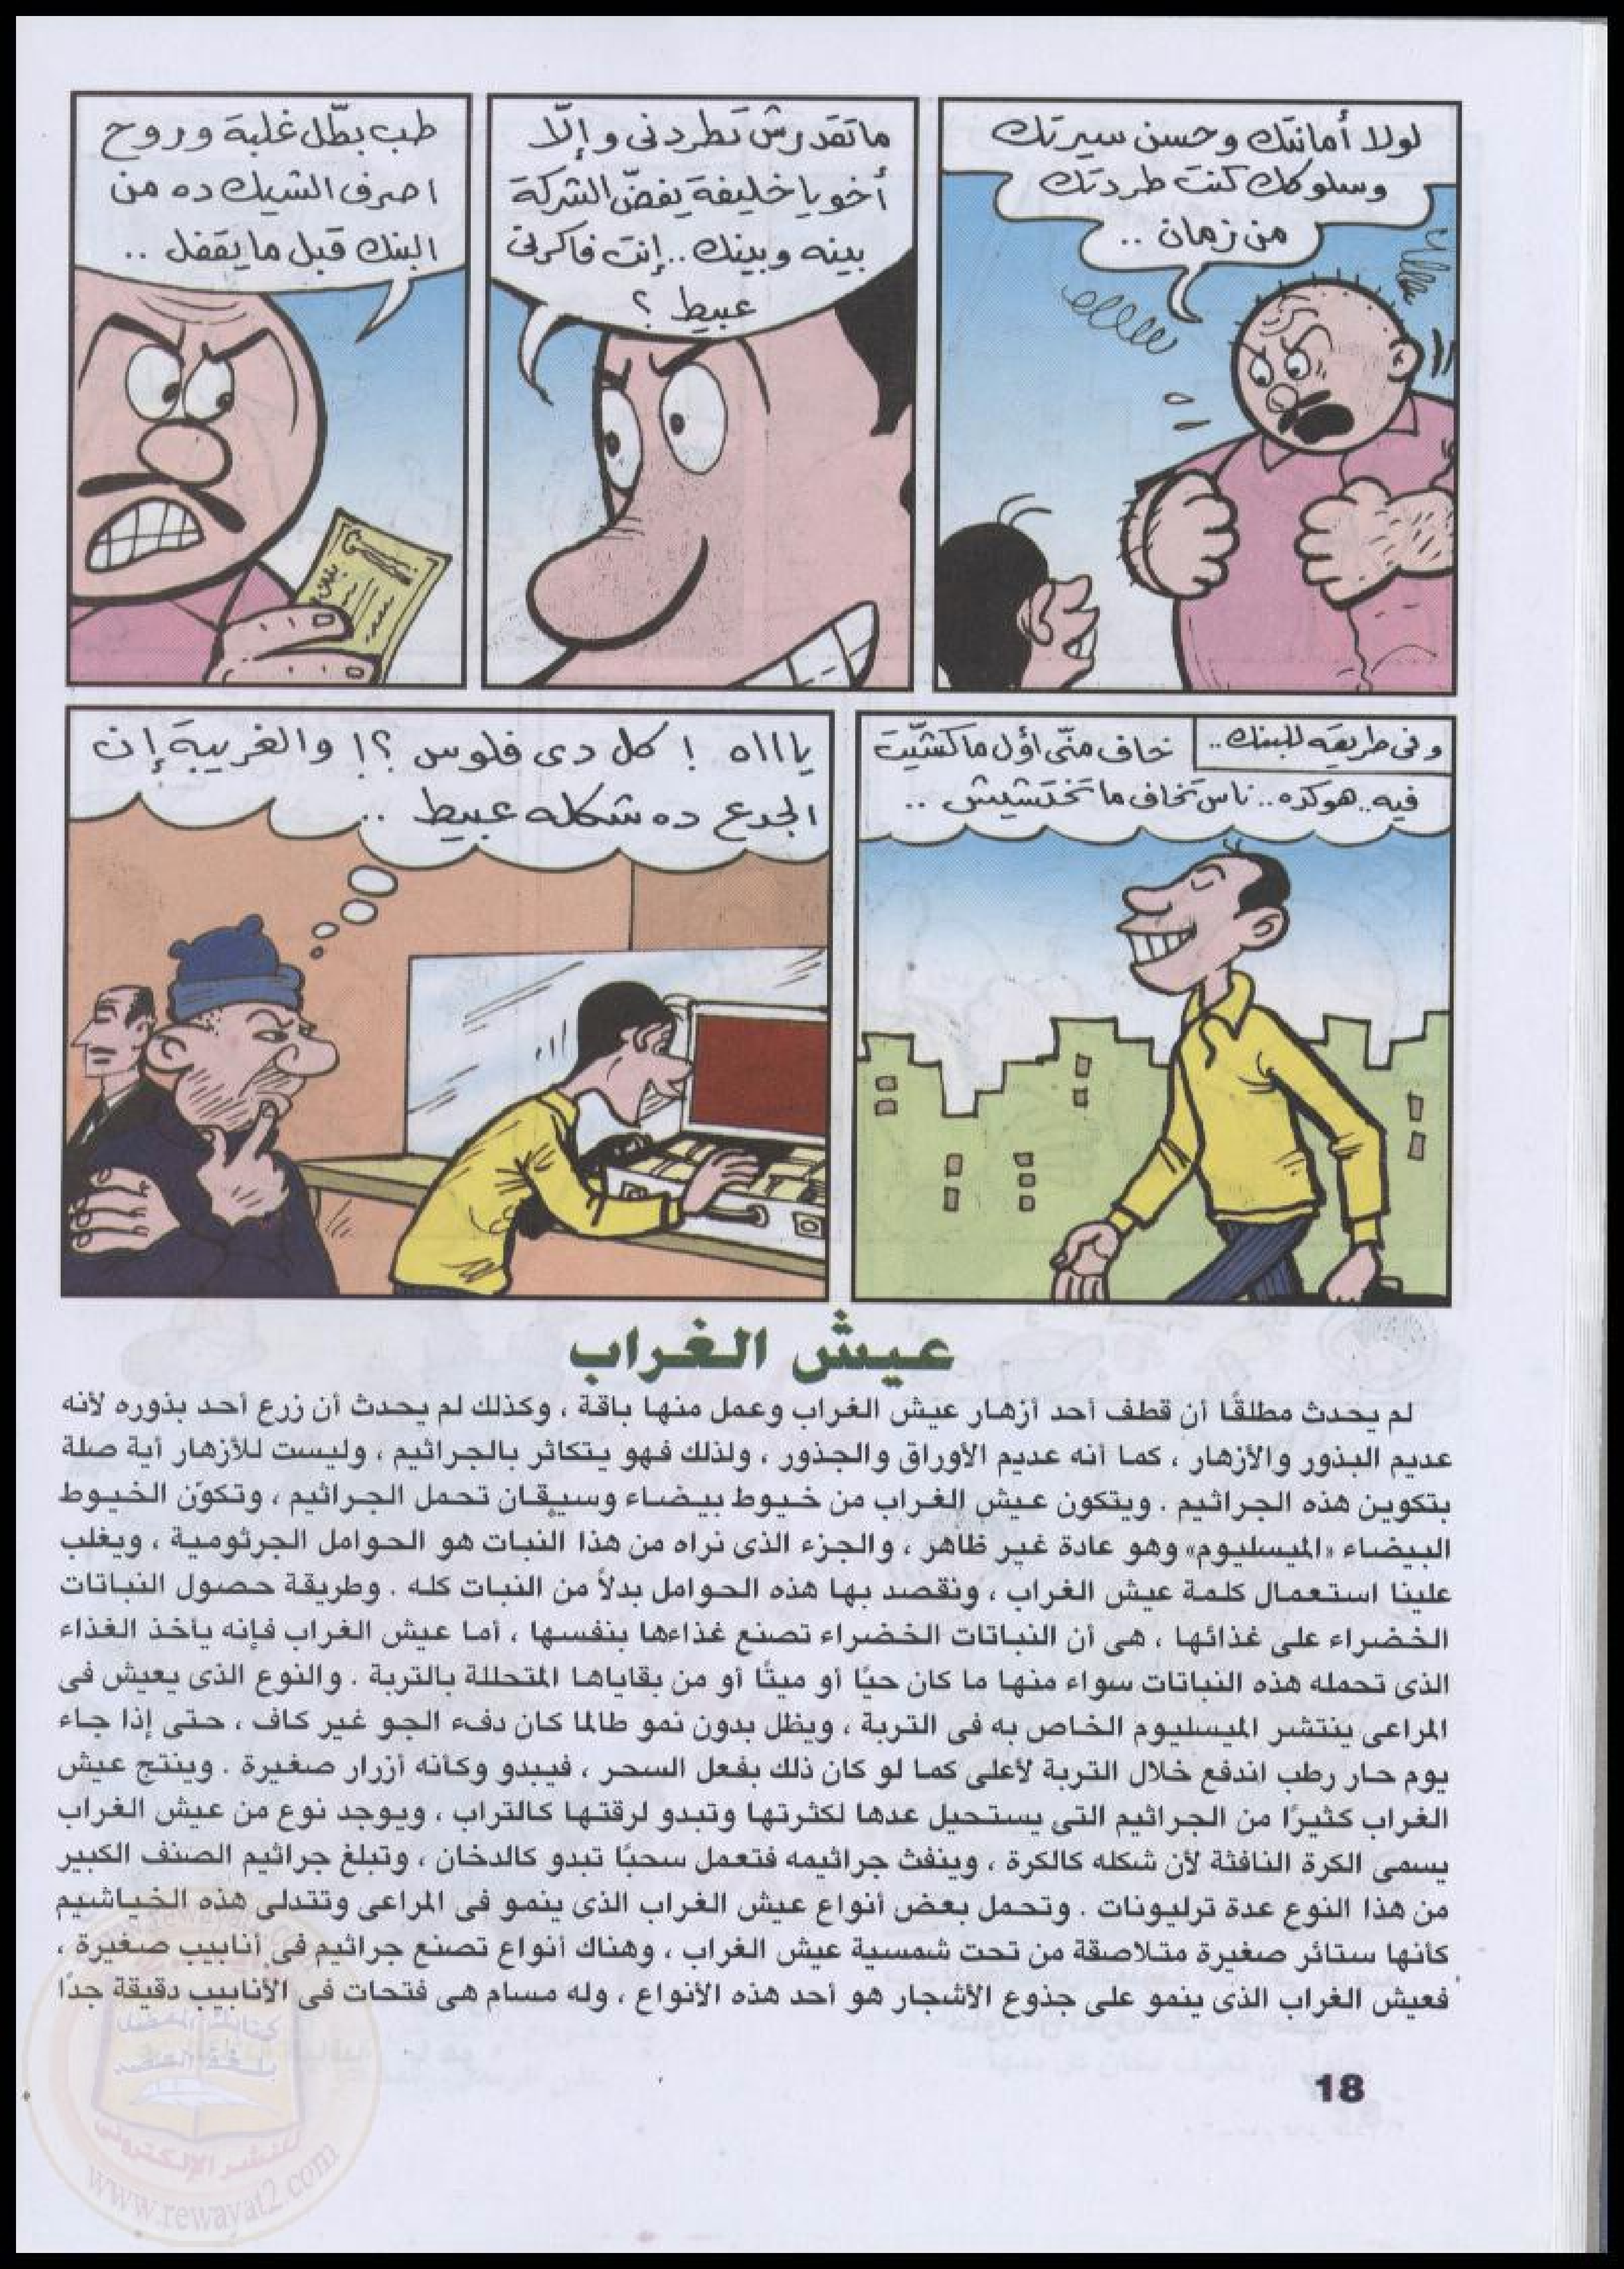 لولا أمانتك وحسن سيرتك
وسلوكك كنت طردتك
من زمان ..
ماتقدرش تطردنى وإلّا
أخويا خليفة يفضّ الشركة
بينه وبينك .. إنت فاكرنى
عبيط ؟
طب بطّل غلبة وروح
اصرف الشيك ده من
البنك قبل مايقفل ..
وفى طريقه للبنك ..
خاف منّى أوّل ماكشّيت
فيه .. هو كده .. ناس تخاف ماتختشيش ..
ياااه ! كل دى فلوس ؟! والغريبة إن
الجدع ده شكله عبيط ..
عيش الغراب
لم يحدث مطلقًا أن قطف أحد أزهار عيش الغراب وعمل منها باقة ، وكذلك لم يحدث أن زرع أحد بذوره لأنه
عديم البذور والأزهار ، كما أنه عديم الأوراق والجذور ، ولذلك فهو يتكاثر بالجراثيم ، وليست للأزهار أية صلة
بتكوين هذه الجراثيم . ويتكون عيش الغراب من خيوط بيضاء وسيقان تحمل الجراثيم ، وتكوّن الخيوط
البيضاء «الميسليوم» وهو عادة غير ظاهر ، والجزء الذى نراه من هذا النبات هو الحوامل الجرثومية ، ويغلب
علينا استعمال كلمة عيش الغراب ، ونقصد بها هذه الحوامل بدلاً من النبات كله . وطريقة حصول النباتات
الخضراء على غذائها ، هى أن النباتات الخضراء تصنع غذاءها بنفسها ، أما عيش الغراب فإنه يأخذ الغذاء
الذى تحمله هذه النباتات سواء منها ما كان حيًا أو ميتًا أو من بقاياها المتحللة بالتربة . والنوع الذى يعيش فى
المراعى ينتشر الميسليوم الخاص به فى التربة ، ويظل بدون نمو طالما كان دفء الجو غير كاف ، حتى إذا جاء
يوم حار رطب اندفع خلال التربة لأعلى كما لو كان ذلك بفعل السحر ، فيبدو وكأنه أزرار صغيرة . وينتج عيش
الغراب كثيرًا من الجراثيم التى يستحيل عدها لكثرتها وتبدو لرقتها كالتراب ، ويوجد نوع من عيش الغراب
يسمى الكرة النافثة لأن شكله كالكرة ، وينفث جراثيمه فتعمل سحبًا تبدو كالدخان ، وتبلغ جراثيم الصنف الكبير
من هذا النوع عدة ترليونات . وتحمل بعض أنواع عيش الغراب الذى ينمو فى المراعى وتتدلى هذه الخياشيم
كأنها ستائر صغيرة متلاصقة من تحت شمسية عيش الغراب ، وهناك أنواع تصنع جراثيم فى أنابيب صغيرة ،
فعيش الغراب الذى ينمو على جذوع الأشجار هو أحد هذه الأنواع ، وله مسام هى فتحات فى الأنابيب دقيقة جدًا
18
للنشر الإلكترونى
www.rewayat2.com